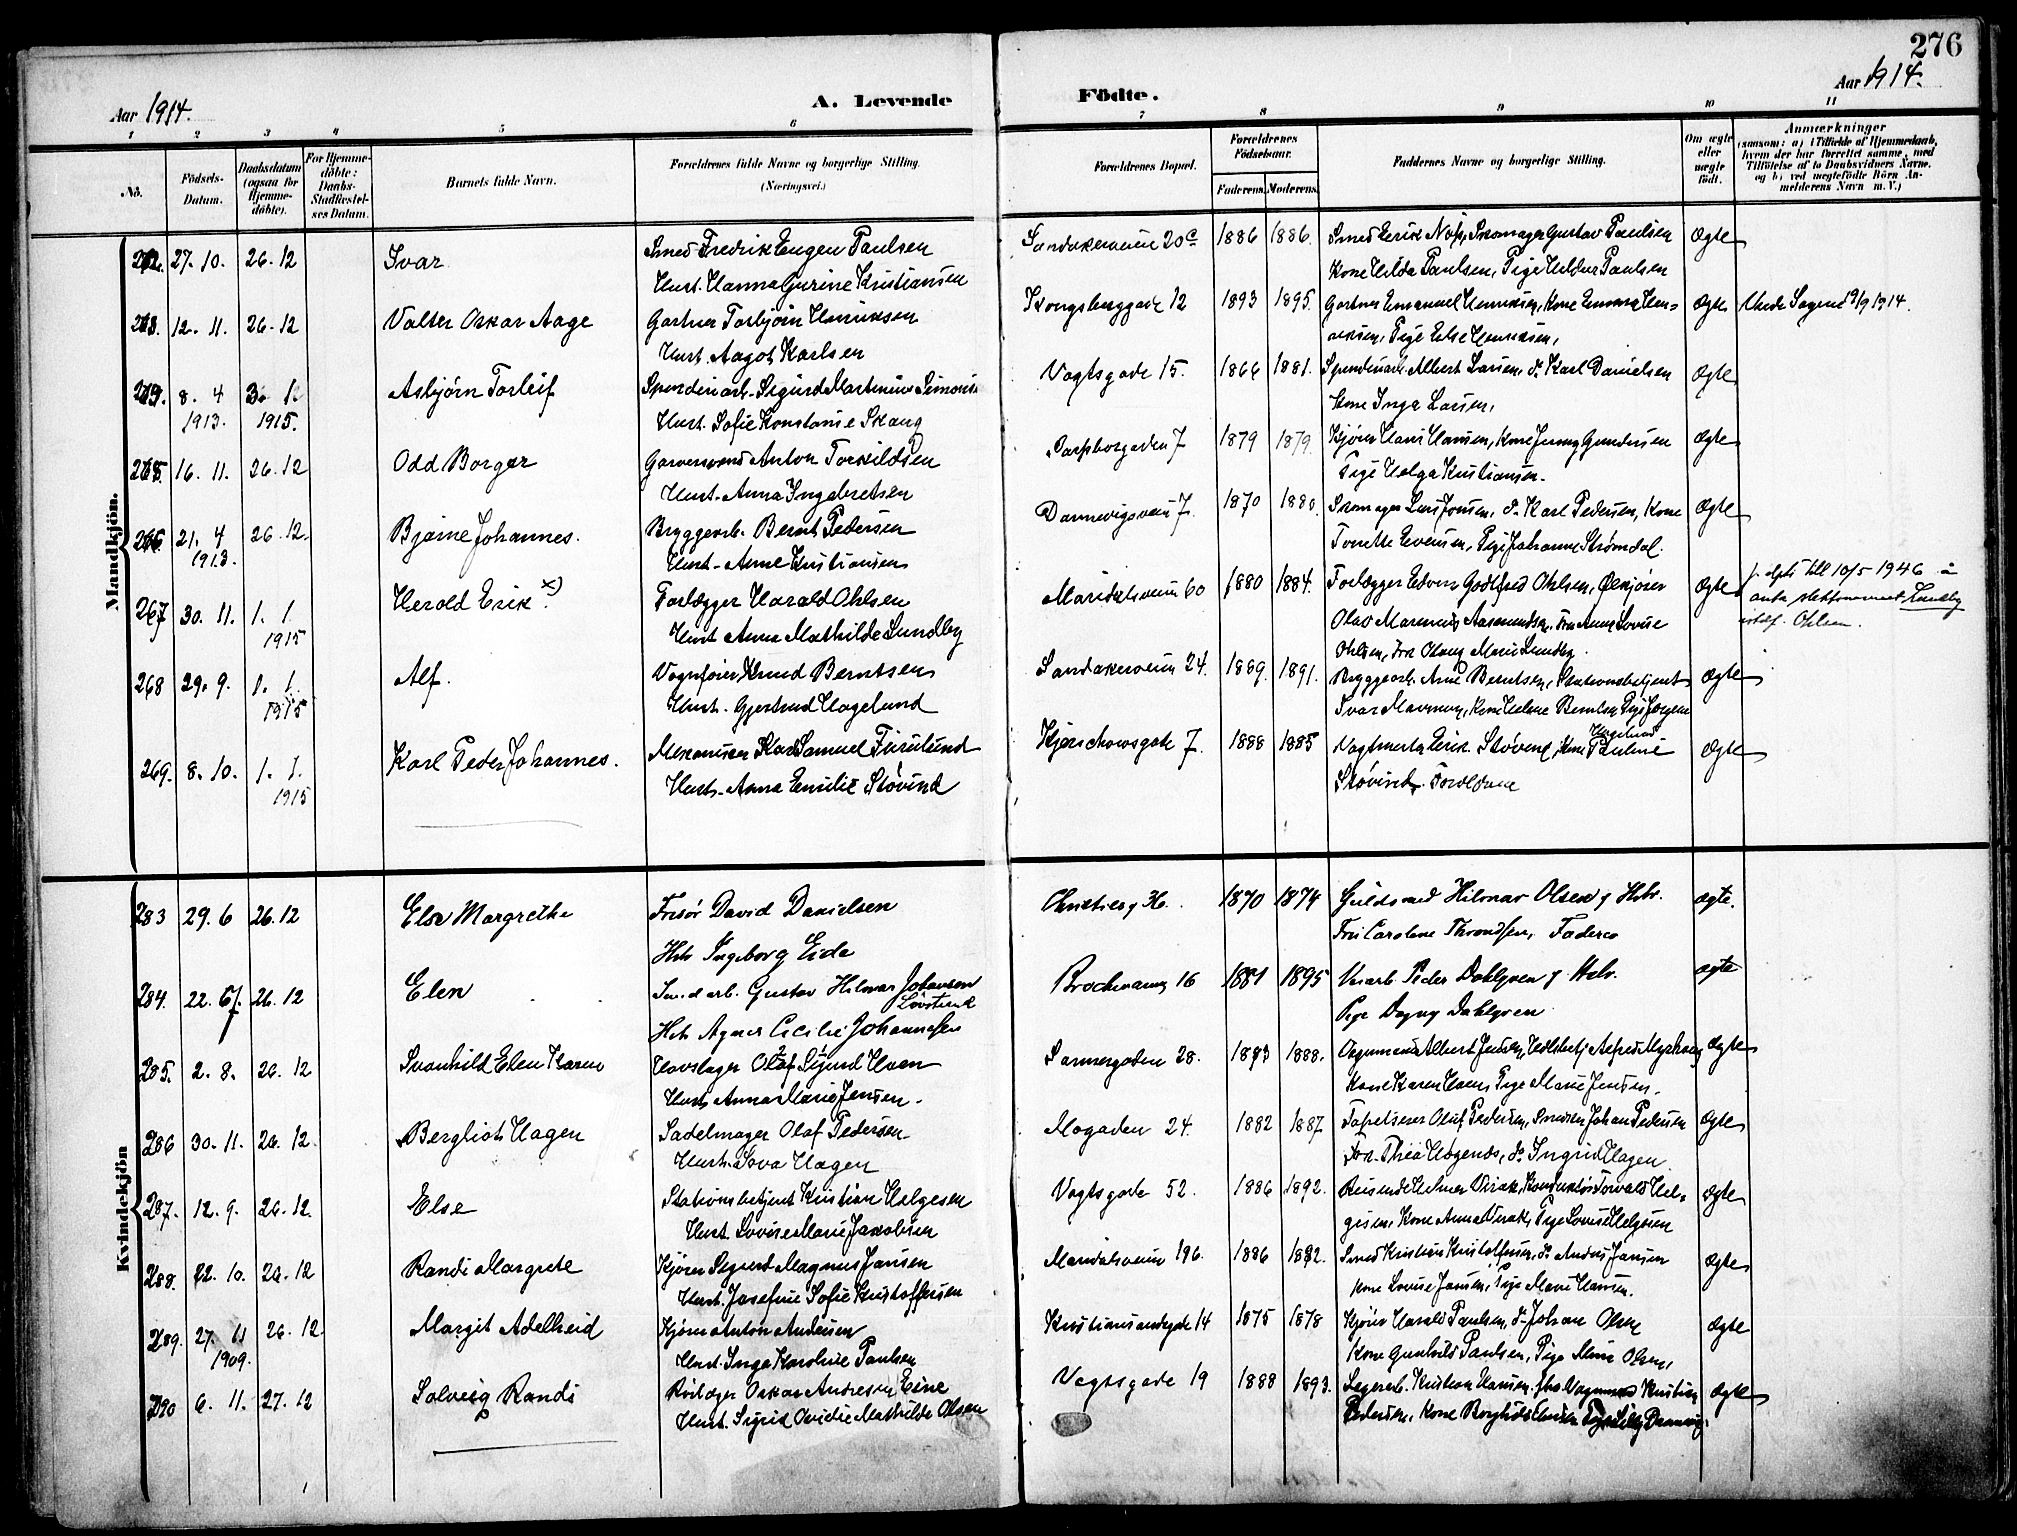 276
Aar 1914.
A. Levende
Födte.
Aar 1914.
1 2 3 4 5 6 7 8 9 10 11
No.
Födsels-Datum.
Daabsdatum (ogsaa for Hjemmedöbte).
For Hjemmedöbte: Daabs-Stadfæstelses Datum.
Barnets fulde Navn.
Forældrenes fulde Navne og borgerlige Stilling. (Næringsvei.)
Forældrenes Bopæl.
Forældrenes Födselsaar.
Faderens. Moderens.
Faddernes Navne og borgerlige Stilling.
Om ægte eller uægte födt.
Anmærkninger (saasom: a) i Tilfælde af Hjemmedaab, hvem der har forrettet samme, med Tilföielse af to Daabsvidners Navne, og b) ved uægtefödte Börn Anmelderens Navn m. V.)
Mandkjön.
27. 10. 26. 12 Ivar Smed Fredrik Eugen Paulsen Sandakerveien 20c 1886 1886. Smed Erik Næss, Skomager Gustav Paulsen Ægte
Hust. Hanna Gurine Kristiansen Kone Hilda Paulsen, Pige Hildur Paulsen
12. 11. 26. 12 Valter Oskar Aage Gartner Torbjörn Henriksen Kongsberggade 12 1893 1895. Gartner Emanuel Henriksen, Kone Emma Hen- Ægte
Hust. Aagot Karlsen riksen, Pige Else Henriksen,
8. 4 1913. 1915. Asbjørn Torleif Spinderiarb. Sigurd Martinius Simonsen Vogtsgade 15. 1866 1881. Spinderiarb. Albert Larsen, do Karl Danielsen Ægte
Hust. Sofie Konstanse Skaug Kone Inga Larsen,
265 16. 11. 26. 12 Odd Borger Garversvend Anton Torkildsen Sarpborgaden 7 1879 1879. Kjører Hans Hansen, Kone Jenny Gundersen Ægte
Hust. Anna Ingebretsen Pige Helga Kristiansen.
266 21. 4 1913. 26. 12. Bjarne Johannes. Bryggearb. Bernt Pedersen Dannevigsveien 7. 1870 1880. Skomager Lars Jonsen, do Karl Pedersen, Kone Ægte
Hust. Anne Kristiansen Tonette Evensen, Pige Johanne Strømdal.
267 30. 11. 1. 1. 1915 Herold Erik x) Forlægger Harald Ohlsen Maridalsveien 60 1880 1884. Forlægger Edvin Godtfred Ohlsen, Ølkjører Ægte
Hust Anna Mathilde Lundby Olav Marenius Aasmundsen, Fru Anna Lovise
Ohlsen, Fru Olaug Marie Lundby.
10/5 1946 slektsnavnet Lundby istedf. Ohlsen.
268 29. 9. 1. 1. 1915 Alf. Vognfører Knud Berntsen Sandakerveien 24. 1889. 1891. Bryggearb. Arne Berntsen, Stationsbetjent Ægte
Hust. Gjertrud Hagelund Ivar Kone Helene Berntsen Pige Jørgine
Hagelund
269. 8. 10. 1. 1. 1915 Karl Peder Johannes. Mekaniker Karl Samuel Furulund Kjerschowsgade 7. 1888 1885 Vogtmester Erik Støvind, Kone Pauline Ægte
Hust. Anna Emilie Støvind Støvind. Forældrene
Kvindekjön
283 29. 6 26. 12 Elsa Margrethe Frisør David Danielsen 1870 1874 Guldsmed Hilmar Olsen og Hstr. ægte.
Hstr Ingeborg Eide Frk Caroline Throndsen, Faderen
284. 22. 26. 12 Elen Smedarb. Gustav Hilmar Johansen Løvstrand Brochmanng 16 1881 1895 Peder Dahlgren og Hstr. ægte
Hstr Agnes Cecilie Johannessen Pige Dagny Dahlgren
285. 2. 8. 26. 12 Svanhild Elen Karen Hovslager Olaf Sigurd Haen Sannergaden 28. 1893 1888. Albert Jensen, Alfred Ægte
Hust. Anna Marie Jensen. Kone Karen Haen, Pige Marie Jensen.
286 30. 11. 26. 12. Bergliot Hagen Sadelmager Olaf Pedersen Mogaden 24. 1882 1887 Tapetserer Oluf Pedersen, Johan Pedersen Ægte
Hust. Hagen Frk. Thea Hagen, do Ingrid Hagen
287. 12. 9. 26. 12. Else Stationsbetjent Kristian Helgesen Vogtsgade 52. 1886 1892. Konduktør Torvald Hel- Ægte
Hust. Lovise Marie Jacobsen gesen, Kone Anna Pige Lovise Helgesen
288. 12. 10. 26. 12 Randi Margrete Kjører Sigurd Magnus Jansen Maridalsveien 196. 1886 1892. Smed Kristian Kristoffersen, do Anders Jansen Ægte
Hust. Josefine Sofie Kristoffersen Kone Lovise Jansen, Pige Marie Hansen.
289. 27. 11 1909. 26. 12 Margit Adelheid Kjører Anton Andersen Kristiansandsgade 14 1875 1878 Kjører Harald Paulsen, do Johan Olsen Ægte
Hust. Inga Karoline Paulsen Kone Gunhild Paulsen, Pige Marie Olsen,
290 6. 11. 27. 12 Solveig Randi Oskar Andresen Vogtsgade 19 1888 1893. Lagerarb. Kristian Hansen, Kristian Ægte
Hust. Sigrid Ovidie Mathilde Olsen Pedersen, Kone Borghild